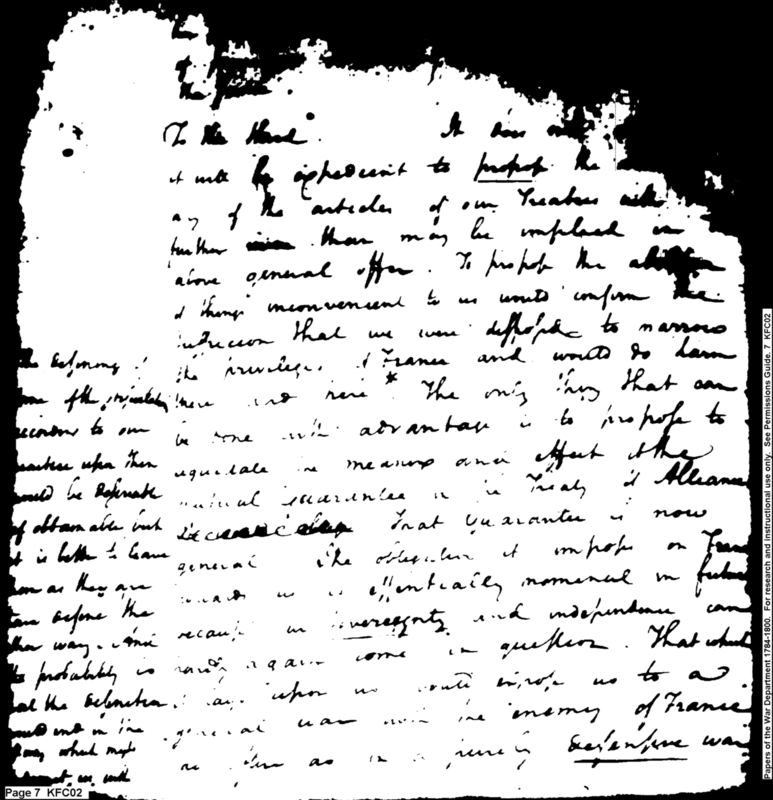 the
To the third. It does not
it will be expedient to propose the
any of the articles of our Treaties with
further than may be implied in
above general offer. To propose the
of things inconvenient to us would confirm the
that we were disposed to narrow
the privileges of France and would do harm
there and here* The only thing that can
be done with advantage is to propose to
the means and effect of the
mutual guarantee in the Treaty of Alliance
That Guarantee is now
general The obligation it imposes on France
towards us is essentially nominal in future
because our sovereignty and independence can
hardly again come in question. That which
it lays upon us would expose us to a
general war with the enemy of France
as in a purely defensive war
The defining of
some of the
according to our
practice upon them
would be desirable
if obtainable but
it is better to leave
them as they are
than define the
other way. And
the probability is
that the definition
would end in the
way which might
us with
Page 7 KFC02
Papers of the War Department 1784-1800. For research and instructional use only. See Permissions Guide. 7 KFC02